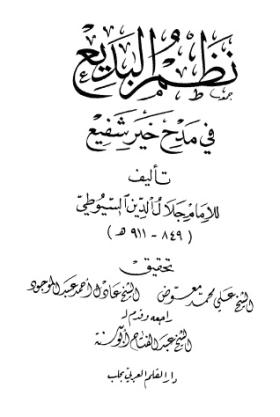 نظم البديع
في مدح خير شفيع
تأليف
للإمام جلال الدين السيوطي
(٨٤٩ - ٩١١ هـ)
تحقيق
الشيخ علي محمد معوض الشيخ عادل أحمد عبد الموجود
راجعه وقدم له
الشيخ عبد الفتاح أبو سنة
دار القلم العربي بحلب